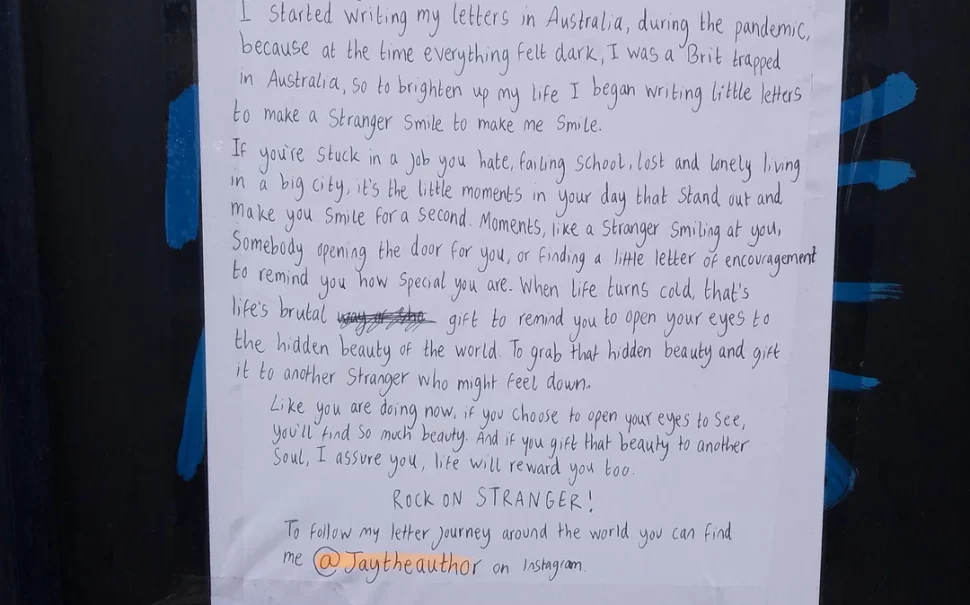 I started writing my letters in Australia, during the pandemic,
because at the time everything felt dark, I was a Brit trapped
in Australia, so to brighten up my life I began writing little letters
to make a stranger smile to make me smile.
If you're stuck in a job you hate, failing school, lost and lonely living
in a big city, it's the little moments in your day that stand out and
make you smile for a second. Moments, like a stranger smiling at you,
Somebody opening the door for you, or finding a little letter of encouragement
to remind you how special you are. When life turns cold, that's
life's brutal gift to remind you to open your eyes to
the hidden beauty of the world. To grab that hidden beauty and gift
it to another stranger who might feel down.
Like you are doing now, if you choose to open your eyes to see,
you'll find so much beauty. And if you gift that beauty to another
soul, I assure you, life will reward you too.
ROCK ON STRANGER!
To follow my letter journey around the world you can find
me @Jaytheauthor on Instagram.